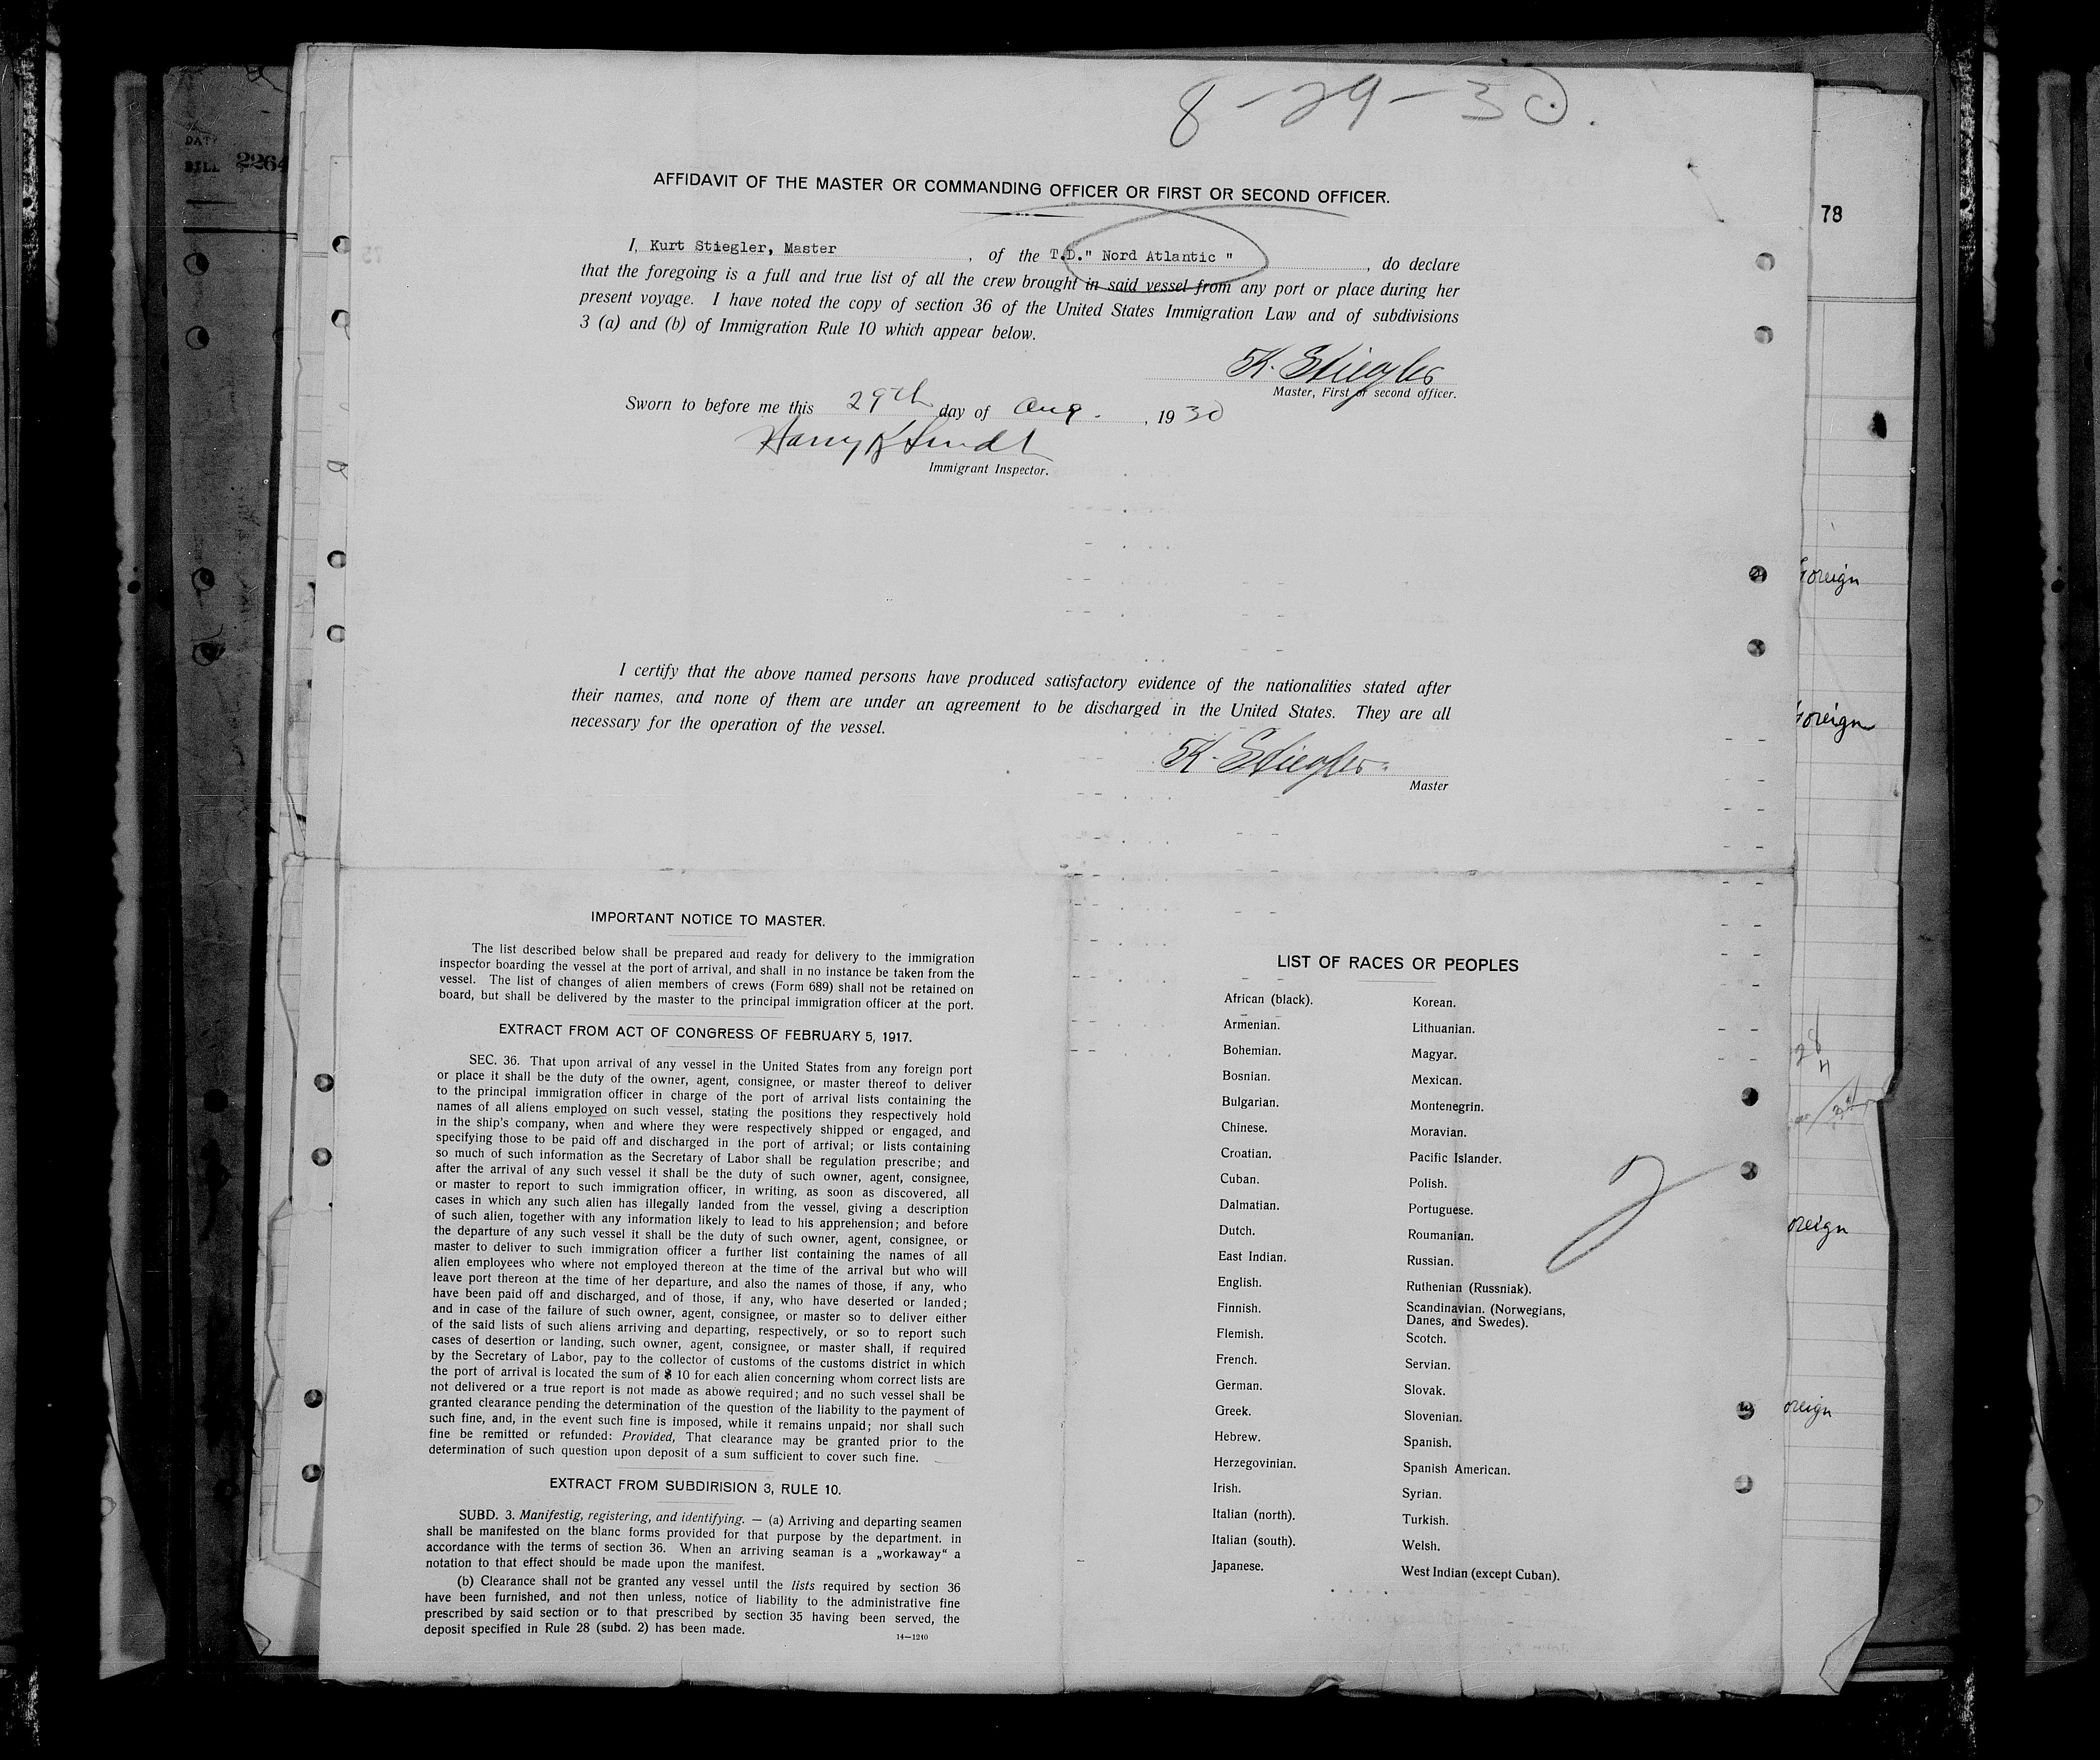 8-29-30.
DAT
BILL 2264
78
AFFIDAVIT OF THE MASTER OR COMMANDING OFFICER OR FIRST OR SECOND OFFICER.
I, Kurt Stiegler, Master, of the T.D." Nord Atlantic ", do declare
that the foregoing is a full and true list of all the crew brought in said vessel from any port or place during her
present voyage. I have noted the copy of section 36 of the United States Immigration Law and of subdivisions
3 (a) and (b) of Immigration Rule 10 which appear below.
K. Stiegler
Master, First or second officer.
Sworn to before me this 29th day of Aug., 1930
Harry
Immigrant Inspector.
foreign
foreign
I certify that the above named persons have produced satisfactory evidence of the nationalities stated after
their names, and none of them are under an agreement to be discharged in the United States. They are all
necessary for the operation of the vessel.
K. Stiegler
Master
IMPORTANT NOTICE TO MASTER.
The list described below shall be prepared and ready for delivery to the immigration
inspector boarding the vessel at the port of arrival, and shall in no instance be taken from the
vessel. The list of changes of alien members of crews (Form 689) shall not be retained on
board, but shall be delivered by the master to the principal immigration officer at the port.
EXTRACT FROM ACT OF CONGRESS OF FEBRUARY 5, 1917.
SEC. 36. That upon arrival of any vessel in the United States from any foreign port
or place it shall be the duty of the owner, agent, consignee, or master thereof to deliver
to the principal immigration officer in charge of the port of arrival lists containing the
names of all aliens employed on such vessel, stating the positions they respectively hold
in the ship's company, when and where they were respectively shipped or engaged, and
specifying those to be paid off and discharged in the port of arrival; or lists containing
so much of such information as the Secretary of Labor shall be regulation prescribe; and
after the arrival of any such vessel it shall be the duty of such owner, agent, consignee,
or master to report to such immigration officer, in writing, as soon as discovered, all
cases in which any such alien has illegally landed from the vessel, giving a description
of such alien, together with any information likely to lead to his apprehension; and before
the departure of any such vessel it shall be the duty of such owner, agent, consignee, or
master to deliver to such immigration officer a further list containing the names of all
alien employees who where not employed thereon at the time of the arrival but who will
leave port thereon at the time of her departure, and also the names of those, if any, who
have been paid off and discharged, and of those, if any, who have deserted or landed;
and in case of the failure of such owner, agent, consignee, or master so to deliver either
of the said lists of such aliens arriving and departing, respectively, or so to report such
cases of desertion or landing, such owner, agent, consignee, or master shall, if required
by the Secretary of Labor, pay to the collector of customs of the customs district in which
the port of arrival is located the sum of $ 10 for each alien concerning whom correct lists are
not delivered or a true report is not made as abowe required; and no such vessel shall be
granted clearance pending the determination of the question of the liability to the payment of
such fine, and, in the event such fine is imposed, while it remains unpaid; nor shall such
fine be remitted or refunded: Provided, That clearance may be granted prior to the
determination of such question upon deposit of a sum sufficient to cover such fine.
EXTRACT FROM SUBDIRISION 3, RULE 10.
SUBD. 3. Manifestig, registering, and identifying. — (a) Arriving and departing seamen
shall be manifested on the blanc forms provided for that purpose by the department. in
accordance with the terms of section 36. When an arriving seaman is a „workaway“ a
notation to that effect should be made upon the manifest.
(b) Clearance shall not be granted any vessel until the lists required by section 36
have been furnished, and not then unless, notice of liability to the administrative fine
prescribed by said section or to that prescribed by section 35 having been served, the
deposit specified in Rule 28 (subd. 2) has been made.
14—1240
LIST OF RACES OR PEOPLES
African (black).
Armenian.
Bohemian.
Bosnian.
Bulgarian.
Chinese.
Croatian.
Cuban.
Dalmatian.
Dutch.
East Indian.
English.
Finnish.
Flemish.
French.
German.
Greek.
Hebrew.
Herzegovinian.
Irish.
Italian (north).
Italian (south).
Japanese.
Korean.
Lithuanian.
Magyar.
Mexican.
Montenegrin.
Moravian.
Pacific Islander.
Polish.
Portuguese.
Roumanian.
Russian.
Ruthenian (Russniak).
Scandinavian. (Norwegians,
Danes, and Swedes).
Scotch.
Servian.
Slovak.
Slovenian.
Spanish.
Spanish American.
Syrian.
Turkish.
Welsh.
West Indian (except Cuban).
2
oreign
oreign